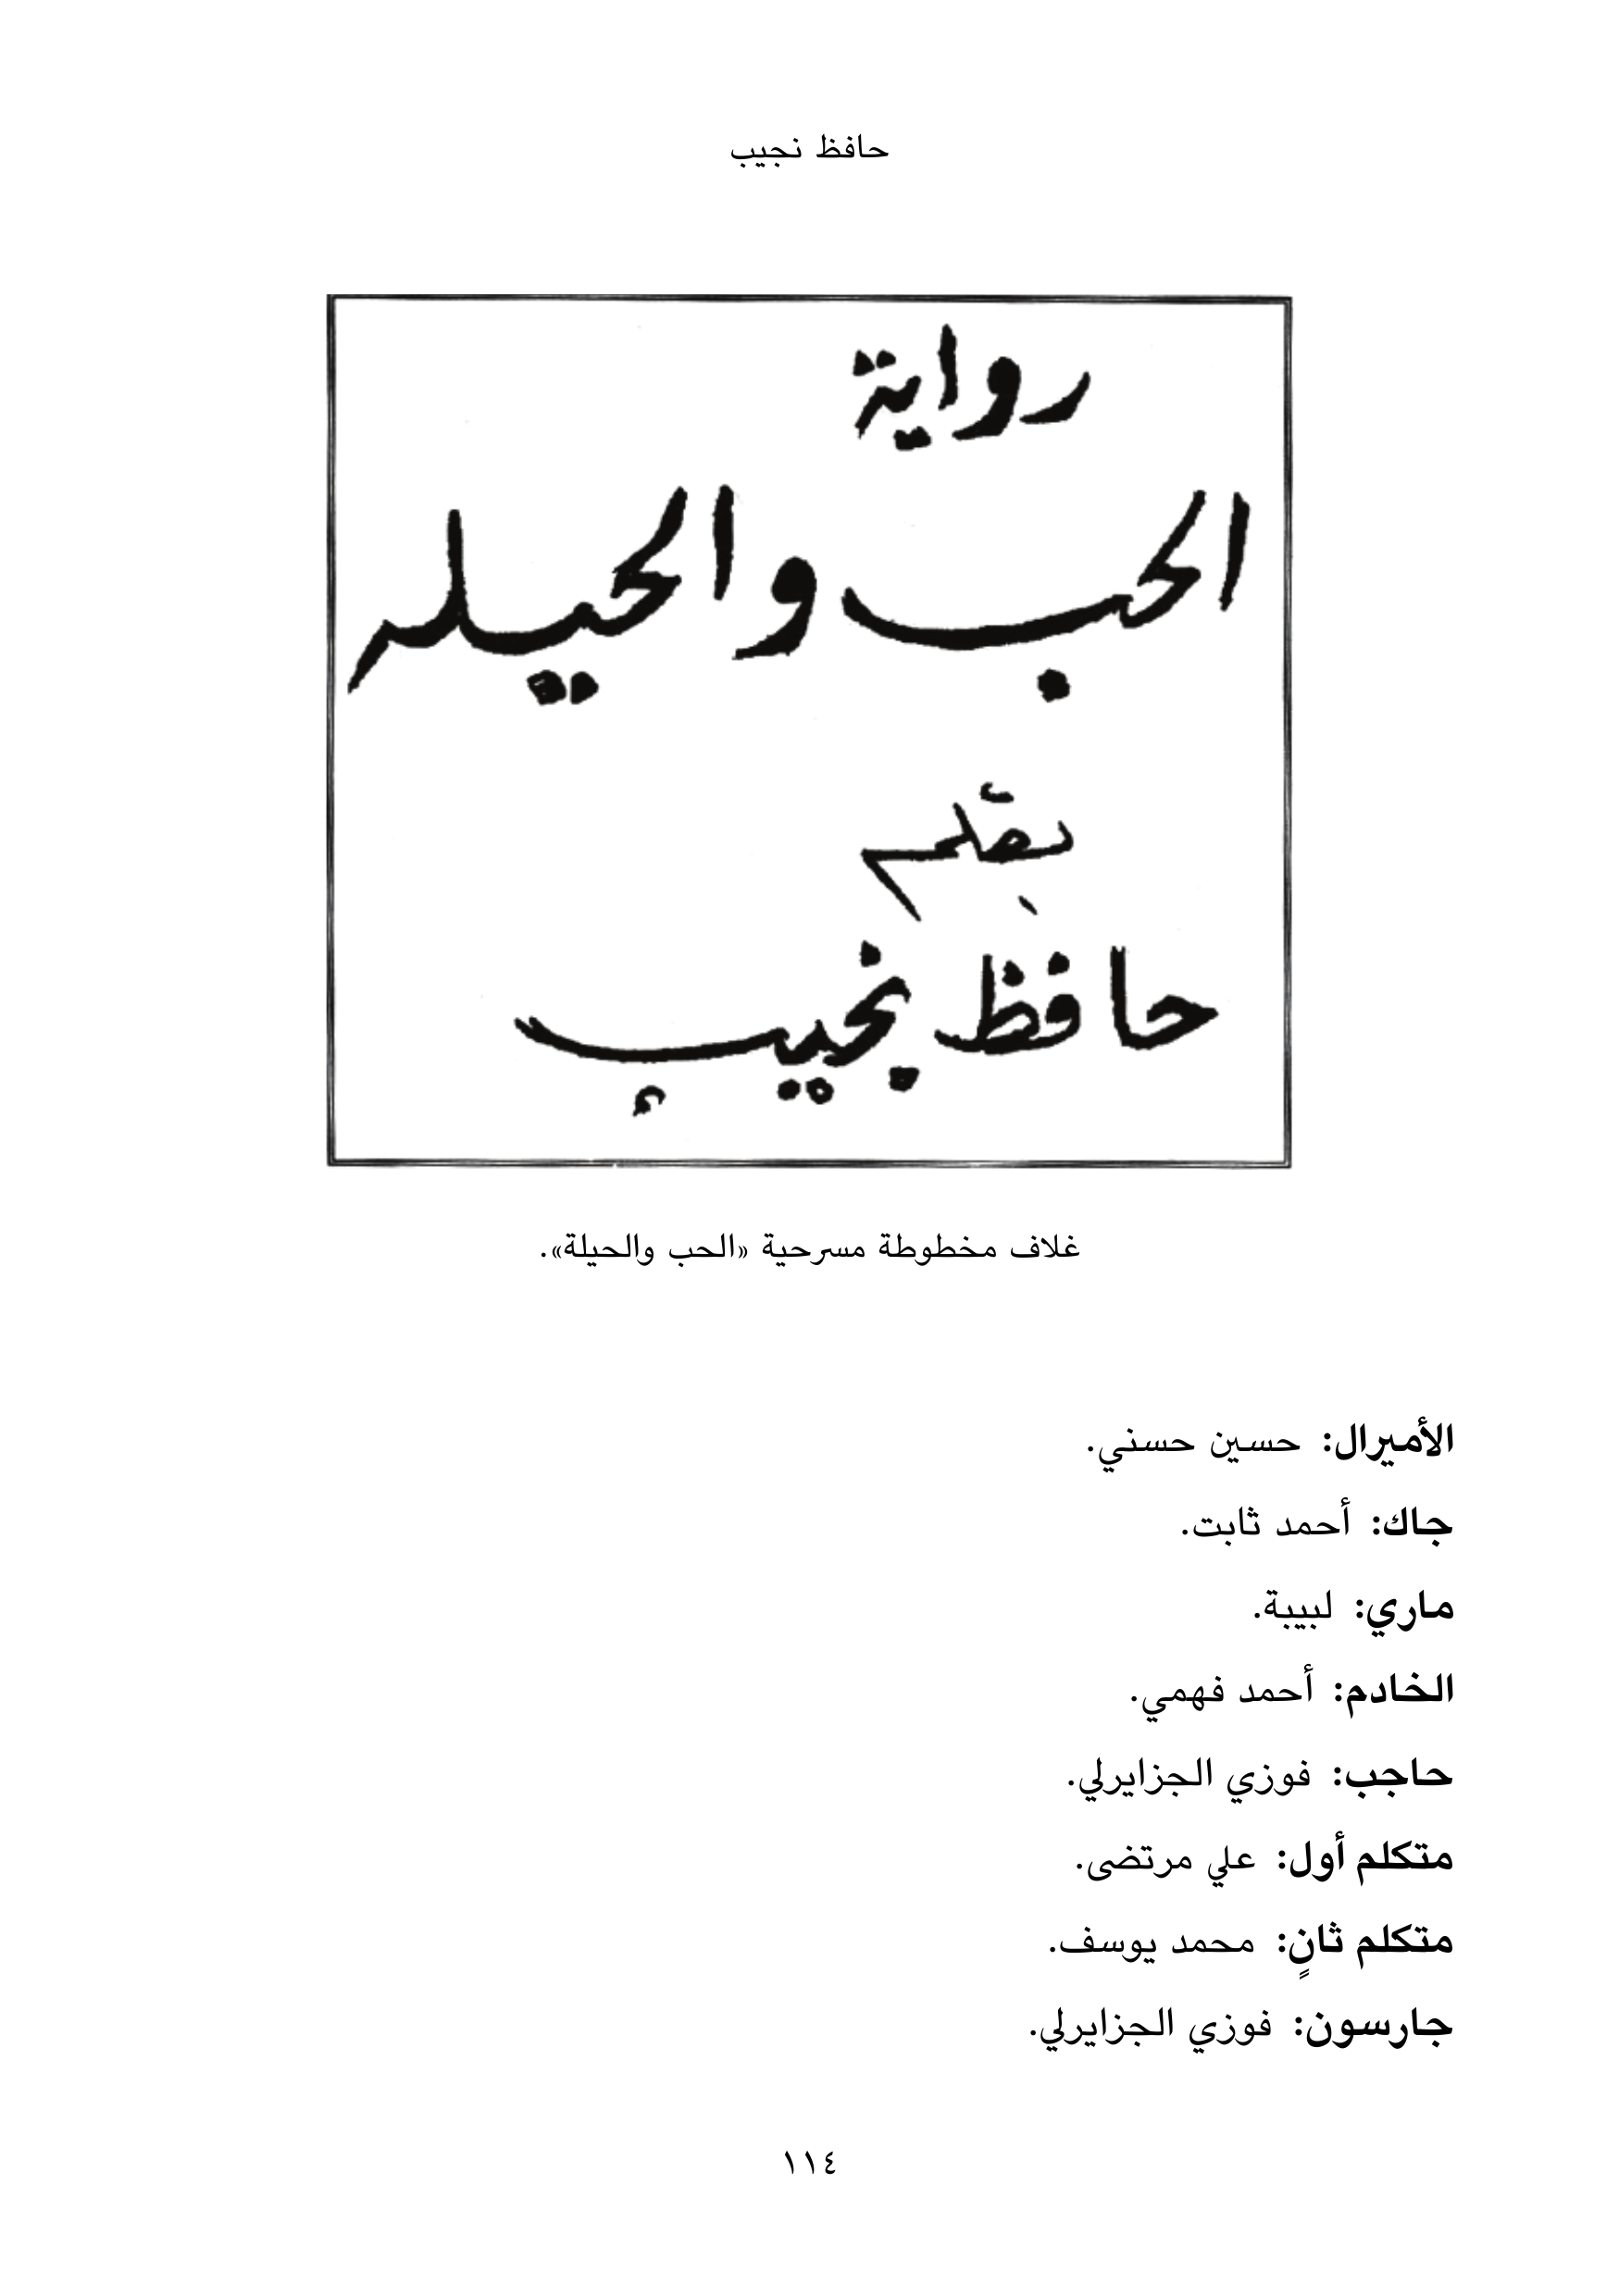 حافظ نجيب
رواية
الحب والحيله
بقلم
حافظ نجيب
غلاف مخطوطة مسرحية «الحب والحيلة».
الأميرال: حسين حسني.
جاك: أحمد ثابت.
ماري: لبيبة.
الخادم: أحمد فهمي.
حاجب: فوزي الجزايرلي.
متكلم أول: علي مرتضى.
متكلم ثانٍ: محمد يوسف.
جارسون: فوزي الجزايرلي.
١١٤